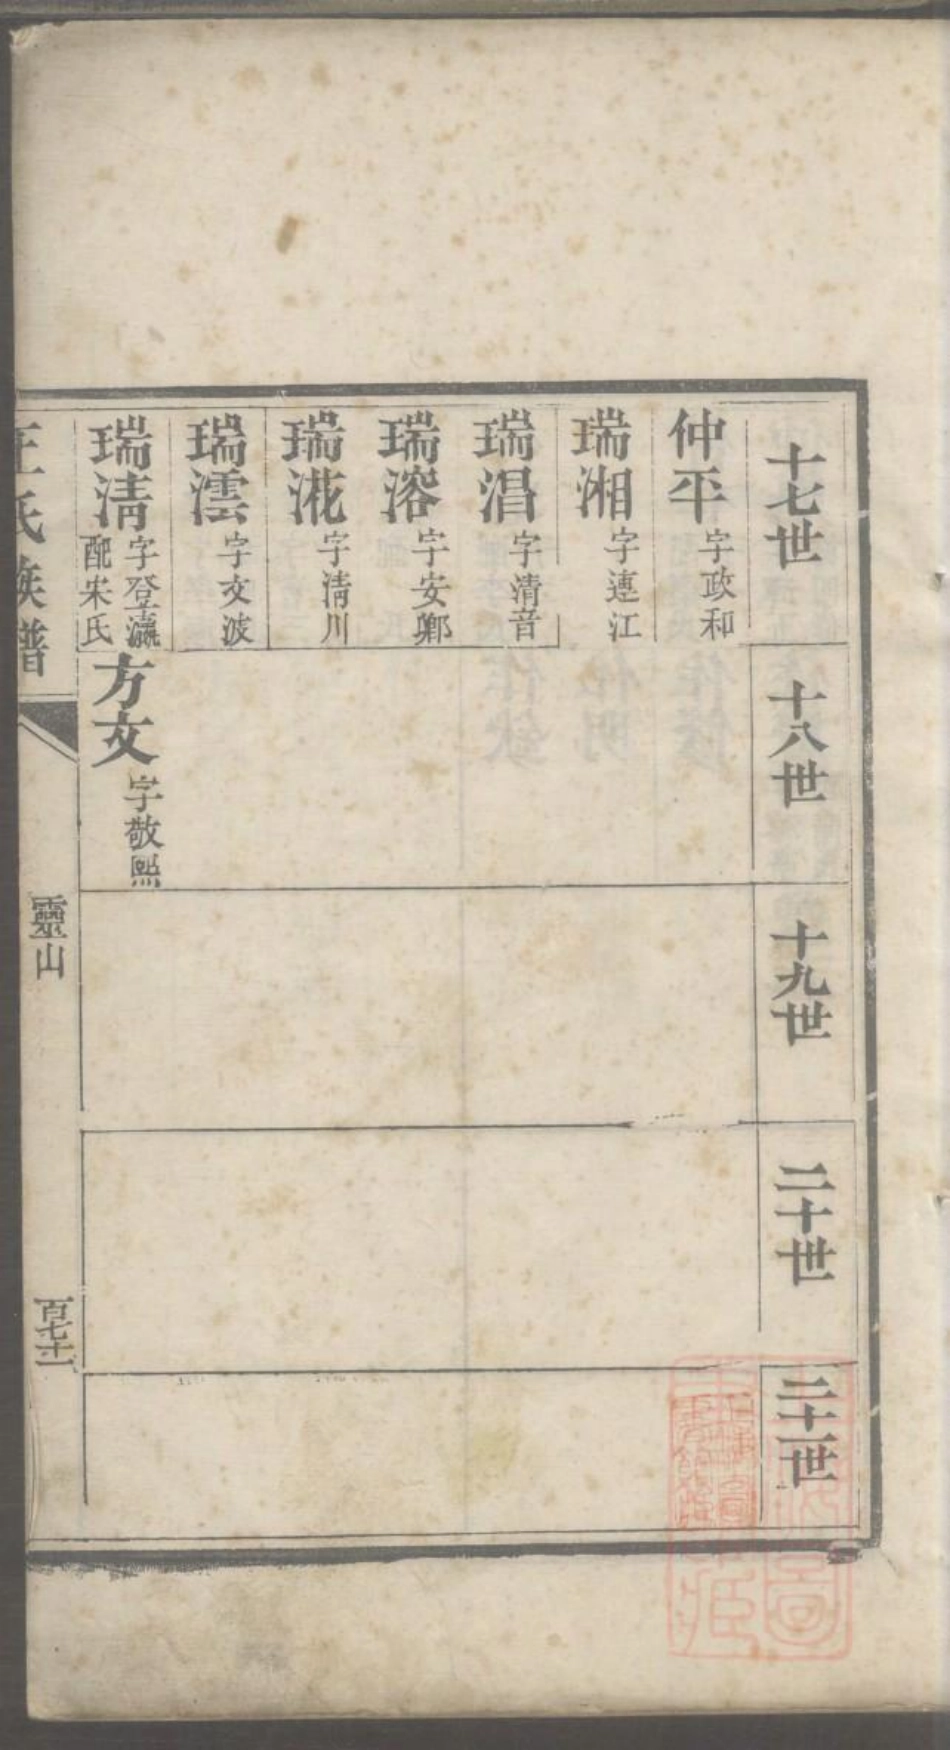 十七世
十八世
十九世
二十世
二十一世
仲平 字政和
瑞湘 字連江
瑞淐 字清音
瑞溶 字安鄉
瑞㳸 字清川
瑞澐 字文波
瑞清 字登瀛 配宋氏
方文 字敬熙
王氏族譜
靈山